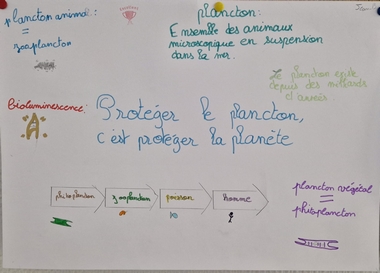 plancton animal:
=
zooplancton
plancton:
Ensemble des animaux
microscopique en suspension
dans la mer.
le plancton existe
depuis des milliards
d'année
Bioluminescence:
Protéger le plancton,
c'est protéger la planète
phitoplancton
zooplancton
poisson
homme
plancton végétal
=
phitoplancton